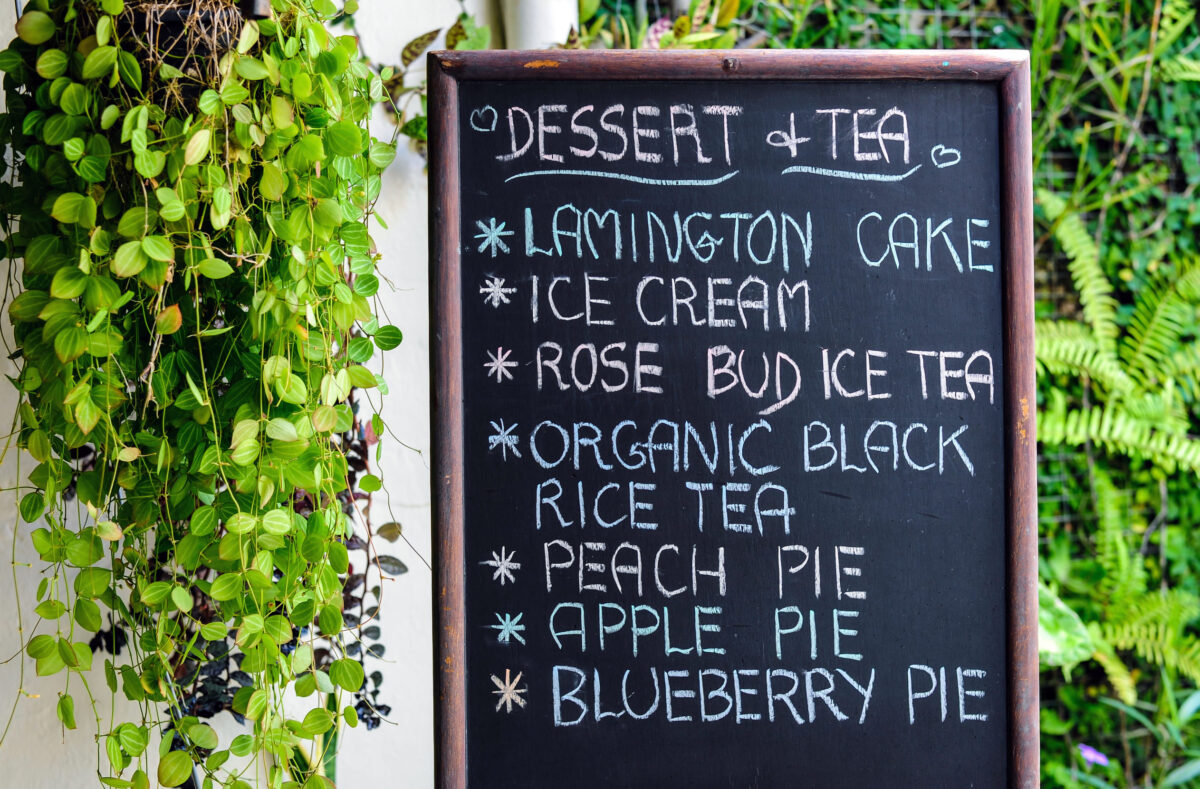 DESSERT & TEA
* LAMINGTON CAKE
* ICE CREAM
* ROSE BUD ICE TEA
* ORGANIC BLACK
RICE TEA
* PEACH PIE
* APPLE PIE
* BLUEBERRY PIE